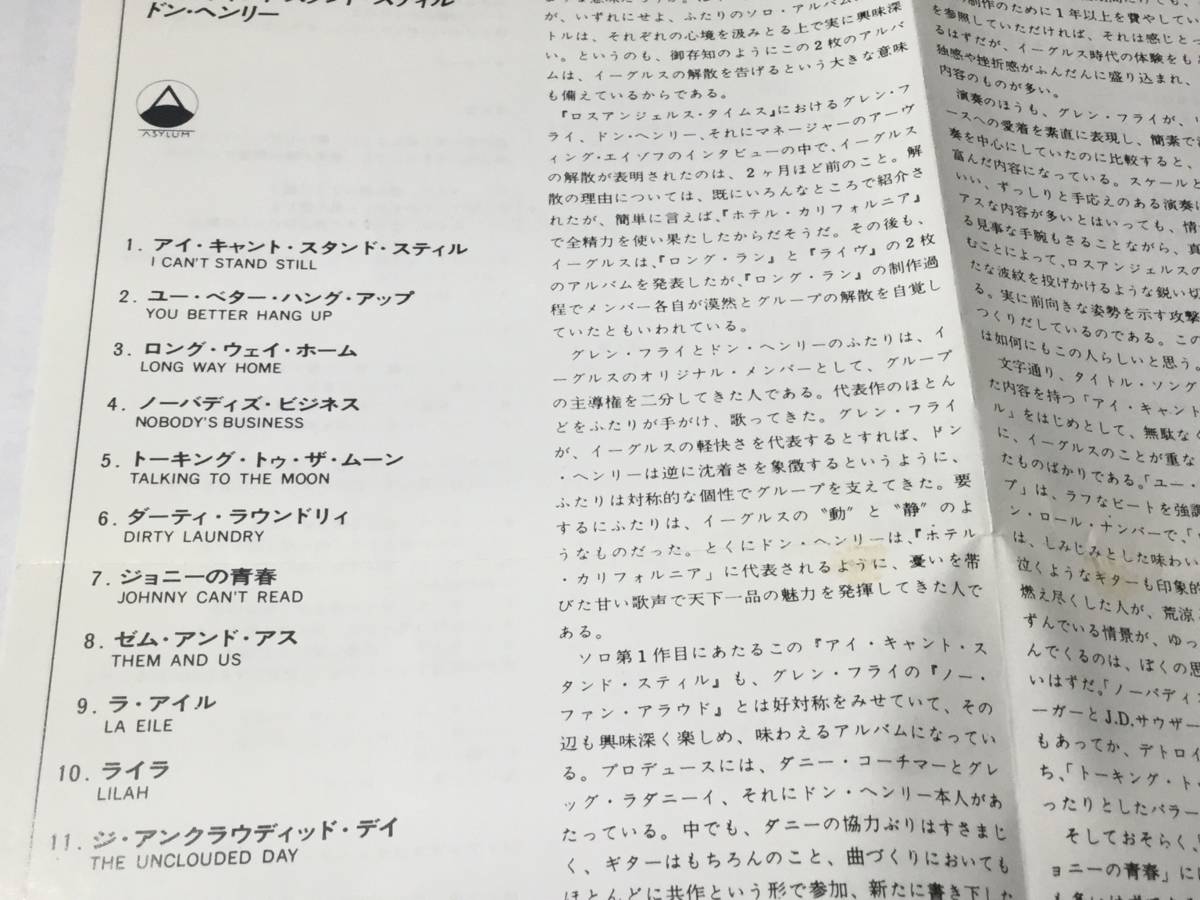 ドン・ヘンリー
ASYLUM
1. アイ・キャント・スタンド・スティル
I CAN'T STAND STILL
2. ユー・ベター・ハング・アップ
YOU BETTER HANG UP
3. ロング・ウェイ・ホーム
LONG WAY HOME
4. ノーバディズ・ビジネス
NOBODY'S BUSINESS
5. トーキング・トゥ・ザ・ムーン
TALKING TO THE MOON
6. ダーティ・ラウンドリィ
DIRTY LAUNDRY
7. ジョニーの青春
JOHNNY CAN'T READ
8. ゼム・アンド・アス
THEM AND US
9. ラ・アイル
LA EILE
10. ライラ
LILAH
11. ジ・アンクラウディッド・デイ
THE UNCLOUDED DAY
が、いずれにせよ、ふたりのソロ・アルバム
トルは、それぞれの心境を汲みとる上で実に興味深
い。というのも、御存知のようにこの2枚のアルバ
ムは、イーグルスの解散を告げるという大きな意味
も備えているからである。
『ロスアンジェルス・タイムス』におけるグレン・フ
ライ、ドン・ヘンリー、それにマネージャーのアーヴ
ィング・エイゾフのインタビューの中で、イーグルス
の解散が表明されたのは、2ヶ月ほど前のこと。解
散の理由については、既にいろんなところで紹介さ
れたが、簡単に言えば、『ホテル・カリフォルニア』
で全精力を使い果たしたからだそうだ。その後も、
イーグルスは、『ロング・ラン』と『ライヴ』の2枚
のアルバムを発表したが、『ロング・ラン』の制作過
程でメンバー各自が漠然とグループの解散を自覚し
ていたともいわれている。
グレン・フライとドン・ヘンリーのふたりは、イ
ーグルスのオリジナル・メンバーとして、グループ
の主導権を二分してきた人である。代表作のほとん
どをふたりが手がけ、歌ってきた。グレン・フライ
が、イーグルスの軽快さを代表するとすれば、ドン
・ヘンリーは逆に沈着さを象徴するというように、
ふたりは対称的な個性でグループを支えてきた。要
するにふたりは、イーグルスの〝動〟と〝静〟のよ
うなものだった。とくにドン・ヘンリーは、『ホテル
・カリフォルニア」に代表されるように、憂いを帯
びた甘い歌声で天下一品の魅力を発揮してきた人で
ある。
ソロ第1作目にあたるこの『アイ・キャント・ス
タンド・スティル』も、グレン・フライの『ノー・
ファン・アラウド』とは好対称をみせていて、その
辺も興味深く楽しめ、味わえるアルバムになってい
る。プロデュースには、ダニー・コーチマーとグレ
ッグ・ラダニーイ、それにドン・ヘンリー本人があ
たっている。中でも、ダニーの協力ぶりはすさまじ
く、ギターはもちろんのこと、曲づくりにおいても
ほとんどに共作という形で参加、新たに書き下した
制作のために1年以上を費やしてい
を参照していただければ、それは感じとっ
るはずだが、イーグルス時代の体験をも
独感や挫折感がふんだんに盛り込まれ、
内容のものが多い。
演奏のほうも、グレン・フライが、
ースへの愛着を素直に表現し、簡素で
奏を中心にしていたのに比較すると、
富んだ内容になっている。スケールと
いい、ずっしりと手応えのある演奏に
アスな内容が多いとはいっても、情
る見事な手腕もさることながら、真
むことによって、ロスアンジェルスの
たな波紋を投げかけるような鋭い切
る。実に前向きな姿勢を示す攻撃
つくりだしているのである。この
は如何にもこの人らしいと思う。
文字通り、タイトル・ソング
た内容を持つ「アイ・キャント
ル」をはじめとして、無駄なく
に、イーグルスのことが重な
たものばかりである。「ユー・
プ」は、ラフなビートを強調
ン・ロール・ナンバーで、「
は、しみじみとした味わい
泣くようなギターも印象的
燃え尽くした人が、荒涼
ずんでいる情景が、ゆっ
んでくるのは、ぼくの思
いはずだ。「ノーバディズ
ーガーとJ.D.サウザー
もあってか、デトロイ
ち、「トーキング・ト
ったりとしたバラー
そしておそらく、
ョニーの青春」に